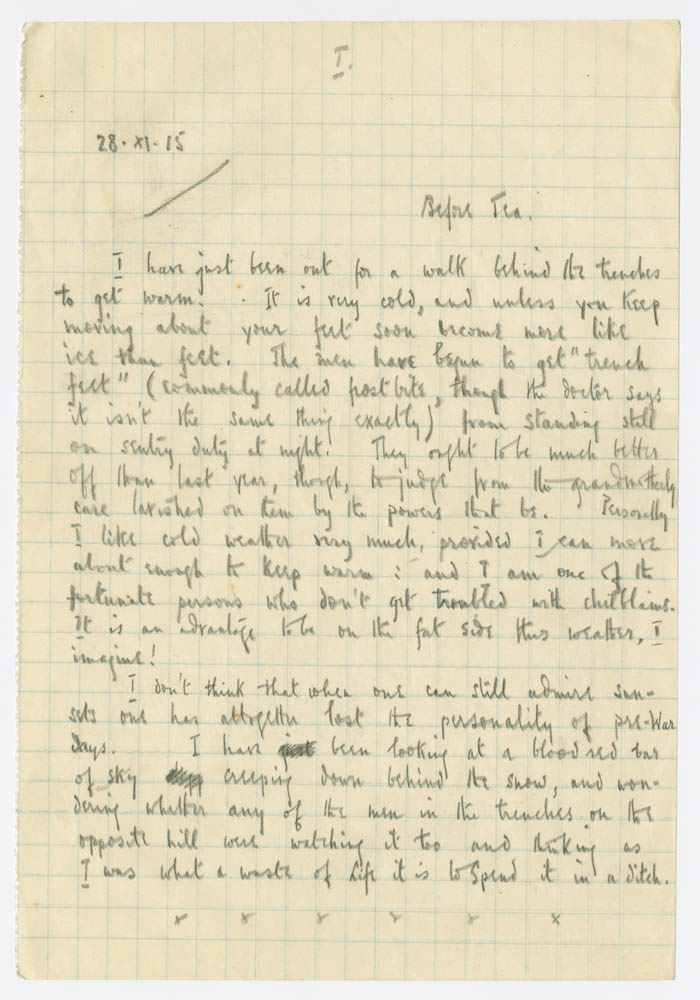 I.
28.XI.15
Before Tea.
I have just been out for a walk behind the trenches
to get warm. It is very cold, and unless you keep
moving about your feet soon become more like
ice than feet. The men have begun to get "trench
feet" (commonly called frostbite, though the doctor says
it isn't the same thing exactly) from standing still
on sentry duty at night. They ought to be much better
off than last year, though, to judge from the grandmotherly
care lavished on them by the powers that be. Personally
I like cold weather very much, provided I can move
about enough to keep warm: and I am one of the
fortunate persons who don't get troubled with chilblains.
It is an advantage to be on the fat side this weather, I
imagine!
I don't think that when one can still admire sun-
sets one has altogether lost the personality of pre-War
days. I have just been looking at a blood red bar
of sky creeping down behind the snow, and won-
dering whether any of the men in the trenches on the
opposite hill were watching it too and thinking as
I was what a waste of Life it is to spend it in a ditch.
x x x x x x